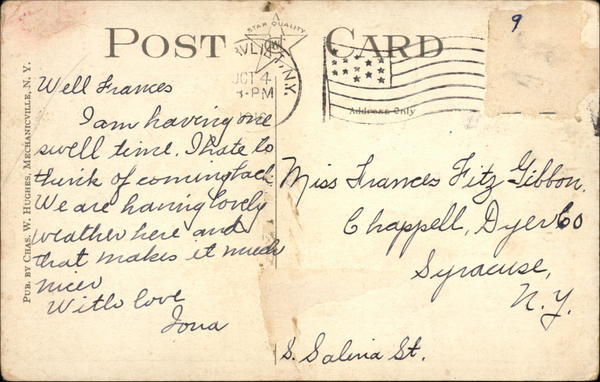 9
STAR QUALITY
POST CARD
OCT 4
-PM
N.Y.
Address Only
PUB. BY CHAS. W. HUGHES, MECHANICVILLE, N. Y.
Well Frances
I am having one
swell time. I hate to
think of coming back.
We are having lovely
weather here and
that makes it much
nicer
With love
Iona
Miss Frances Fitz Gibbon.
Chappell, Dyer Co
Syracuse,
N.Y.
S. Salina St.